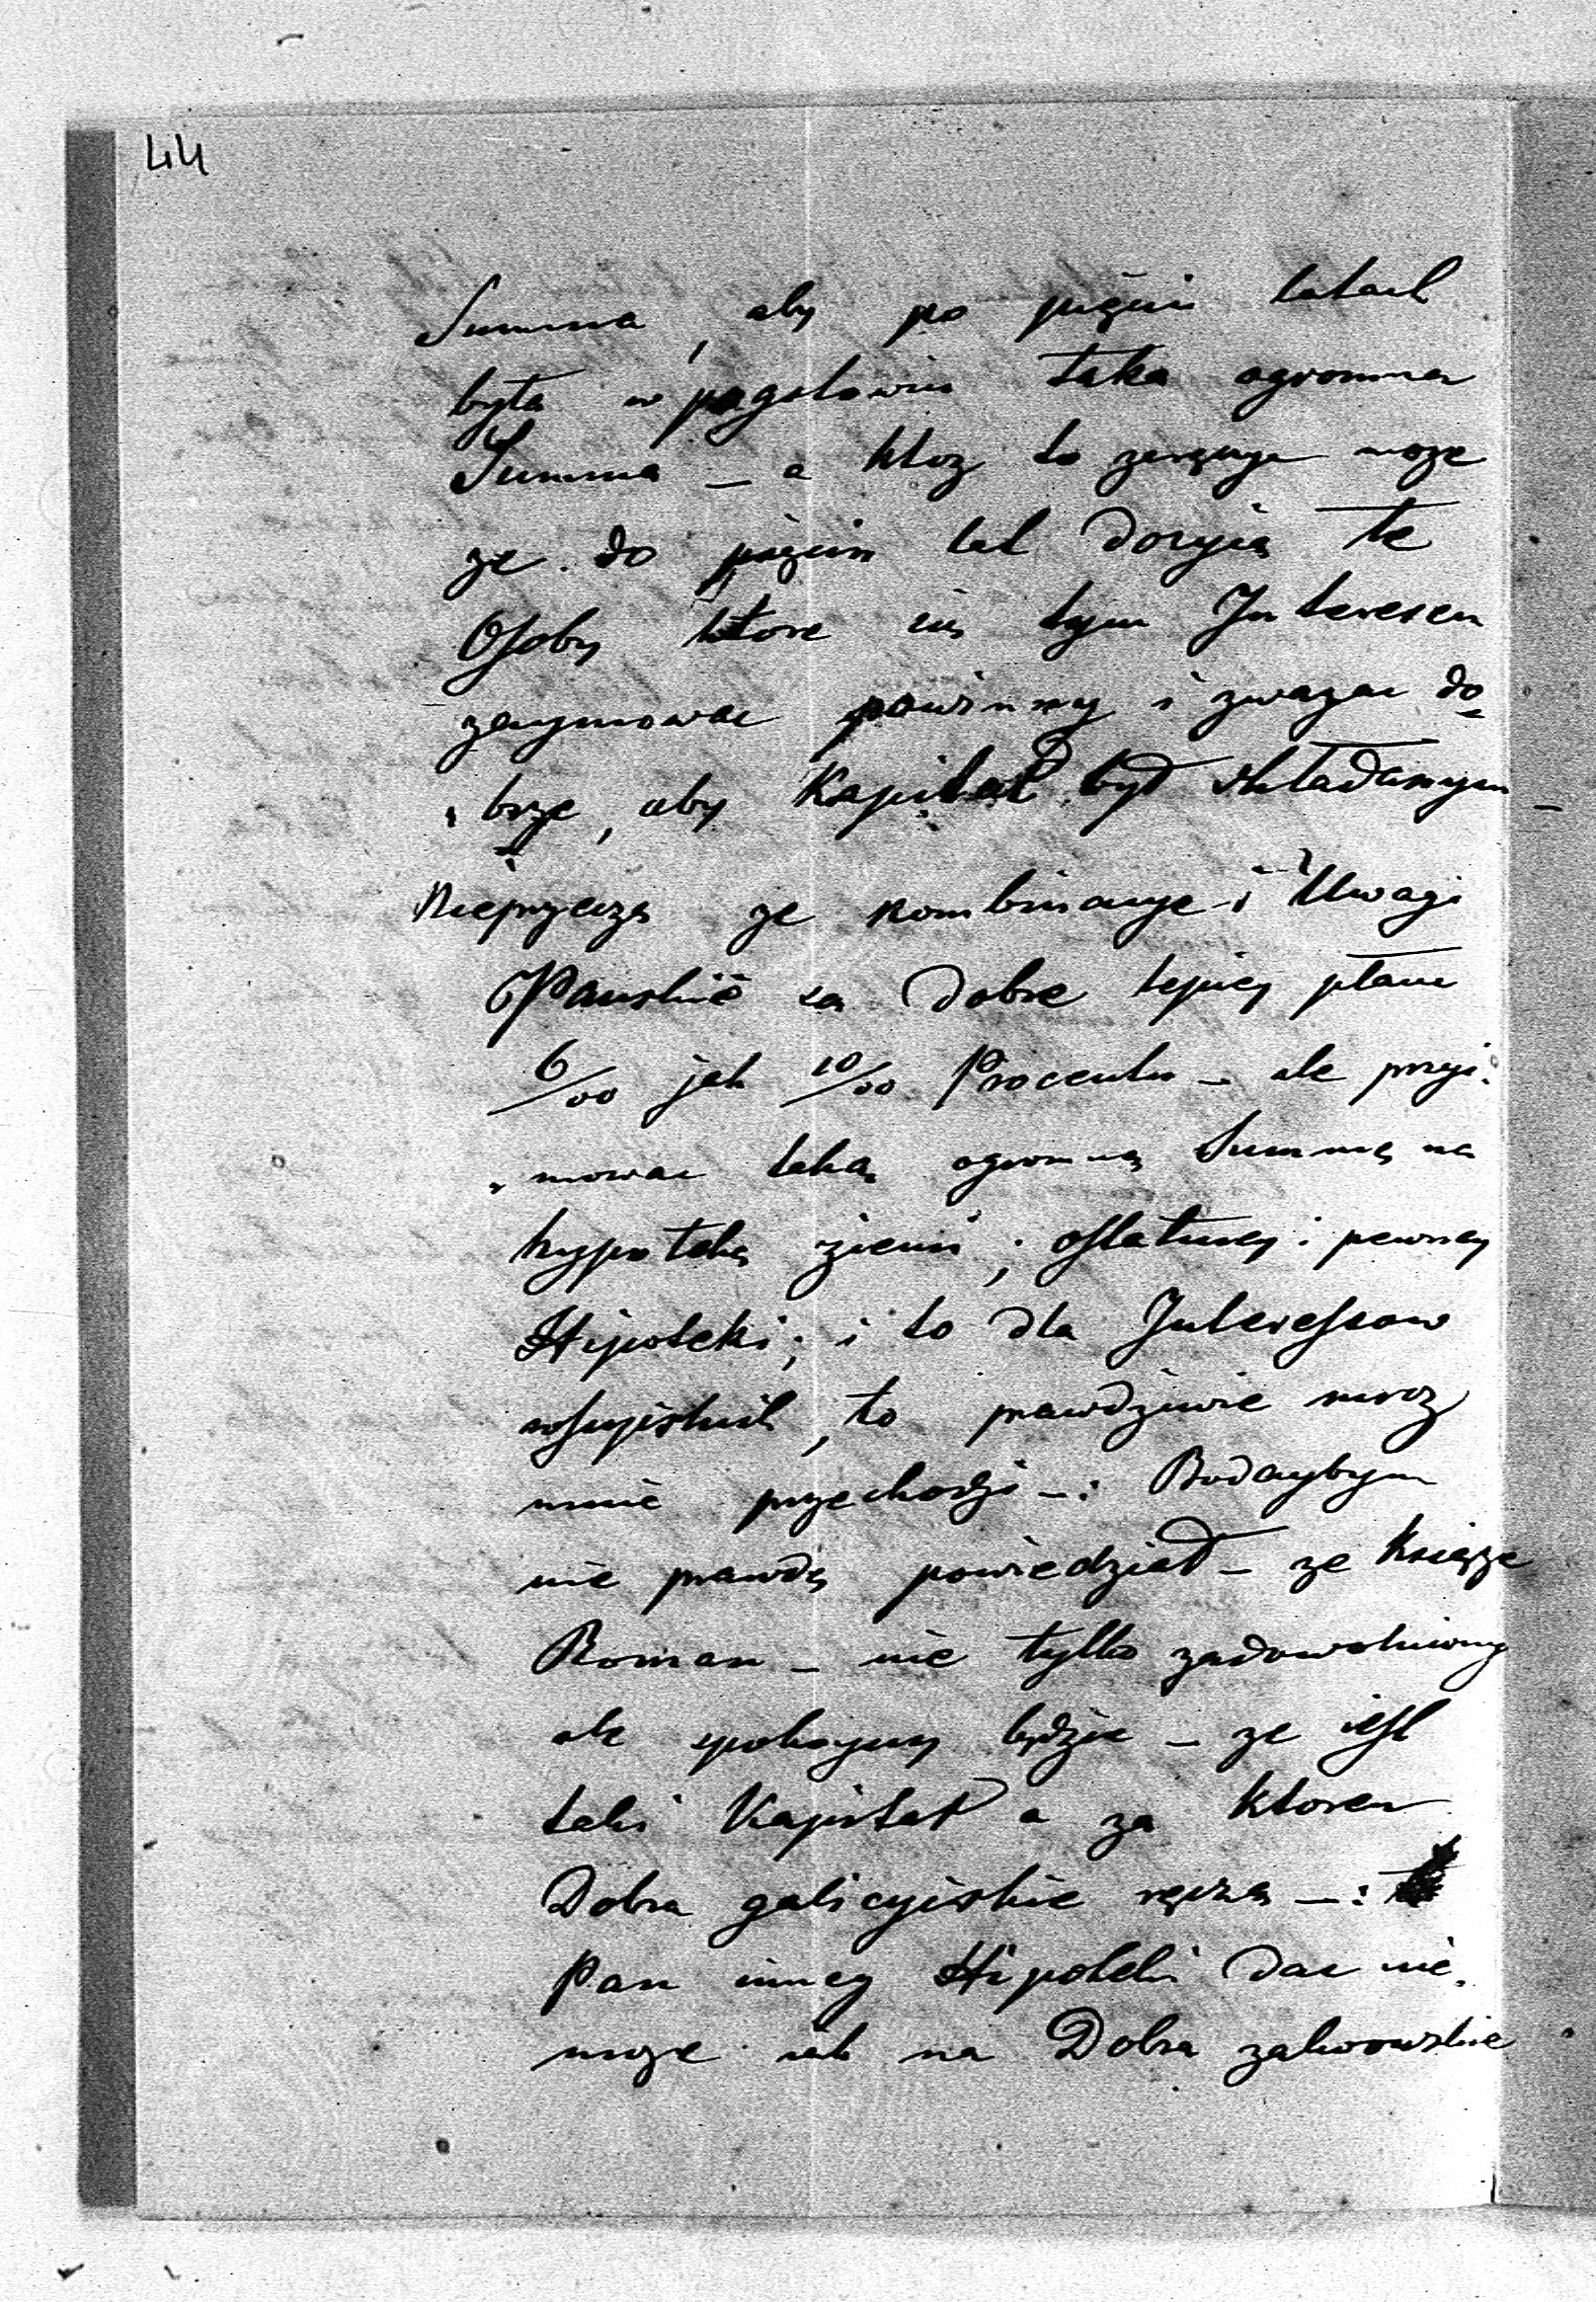 44
Summa, aby po pięciu latach
była w pogotowiu taka ogromna
Summa _ a ktoz to zaręczyc moze
ze do pięciu lat dozyią te
Osoby ktore się tym Interesem
zaymowac powinny i zwazac do=
„brze, aby Kapitał był składanym _
Nieprzeczę ze kombinacye i Uwagi
Pańskie są Dobre lepiey płacic
6/00 jak 10/00 Procentu _ ale przyi„
„mowac taką ogromną Summę na
hypotekę ziemi, ostatniey i pewney
Hipoteki; i to dla Interessow
rossyiskich, to prawdziwie mroz
mnie przechodzi _: Bodaybym
nie prawdę powiedział _ ze Książe
Roman _ nie tylko zadowolniony
ale spokoyny będzie _ ze iest
taki Kapitał a za ktoren
Dobra galicyiskie ręczą _:
Pan inney Hipoteki dac nie„
moze iak na Dobra